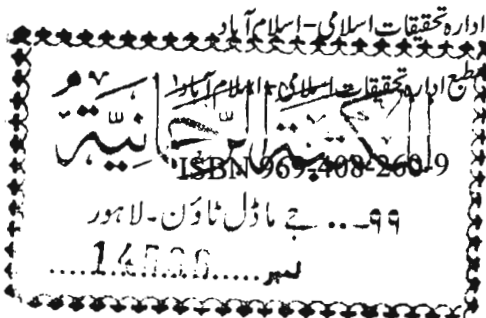 ادارہ تحقیقات اسلامی-اسلام آباد
مطبع ادارہ تحقیقات اسلامی-اسلام آباد
المکتبۃ الرحمانیۃ
ISBN 969-408-260-9
۹۹... جے ماڈل ٹاؤن۔ لاہور
نمبر